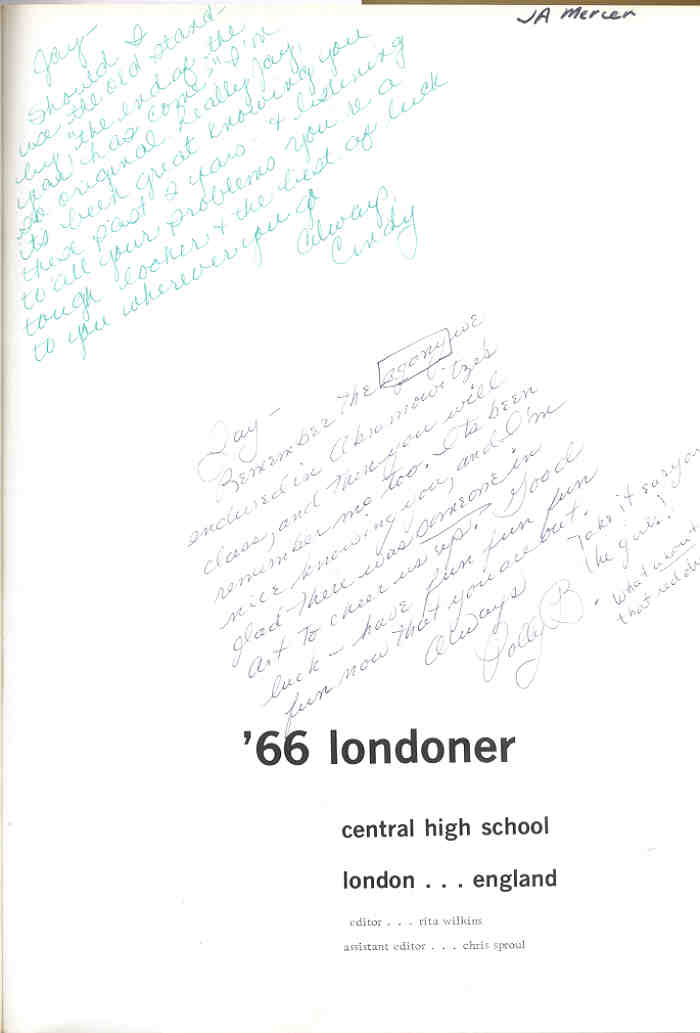 JA Mercer
Jay-
Should I
use the old stand-
by "the end of the
year has come." I'm
so original. Really Jay,
its been great knowing you
these past 2 years. & listening
to all your problems you're a
tough looker & the best of luck
to you wherever you go
Always,
Cindy
Jay-
Remember the agony we
endured in Abramowitz's
class, and then you will
remember me too. Its been
nice knowing you, and I'm
glad there was someone in
art to cheer us up. Good
luck - have fun fun fun
fun now that you are out.
Always
Polly B.
Take it easy on
the girls!
What
that
'66 londoner
central high school
london . . . england
editor . . . rita wilkins
assistant editor . . . chris sproul